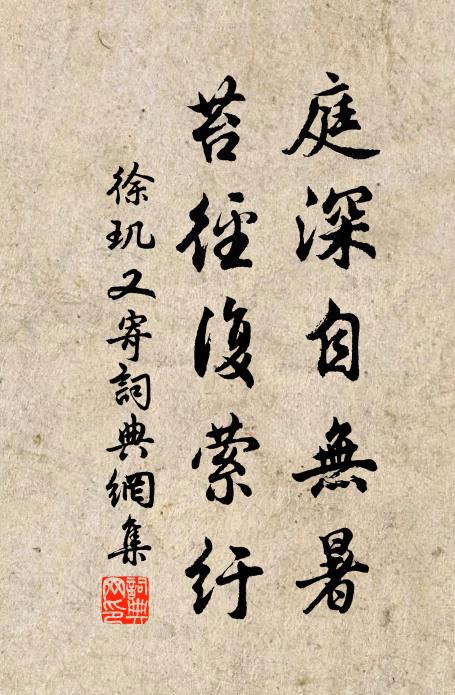 庭深自無暑
苔徑復縈紆
徐玑又寄詞典網集
詞典網印